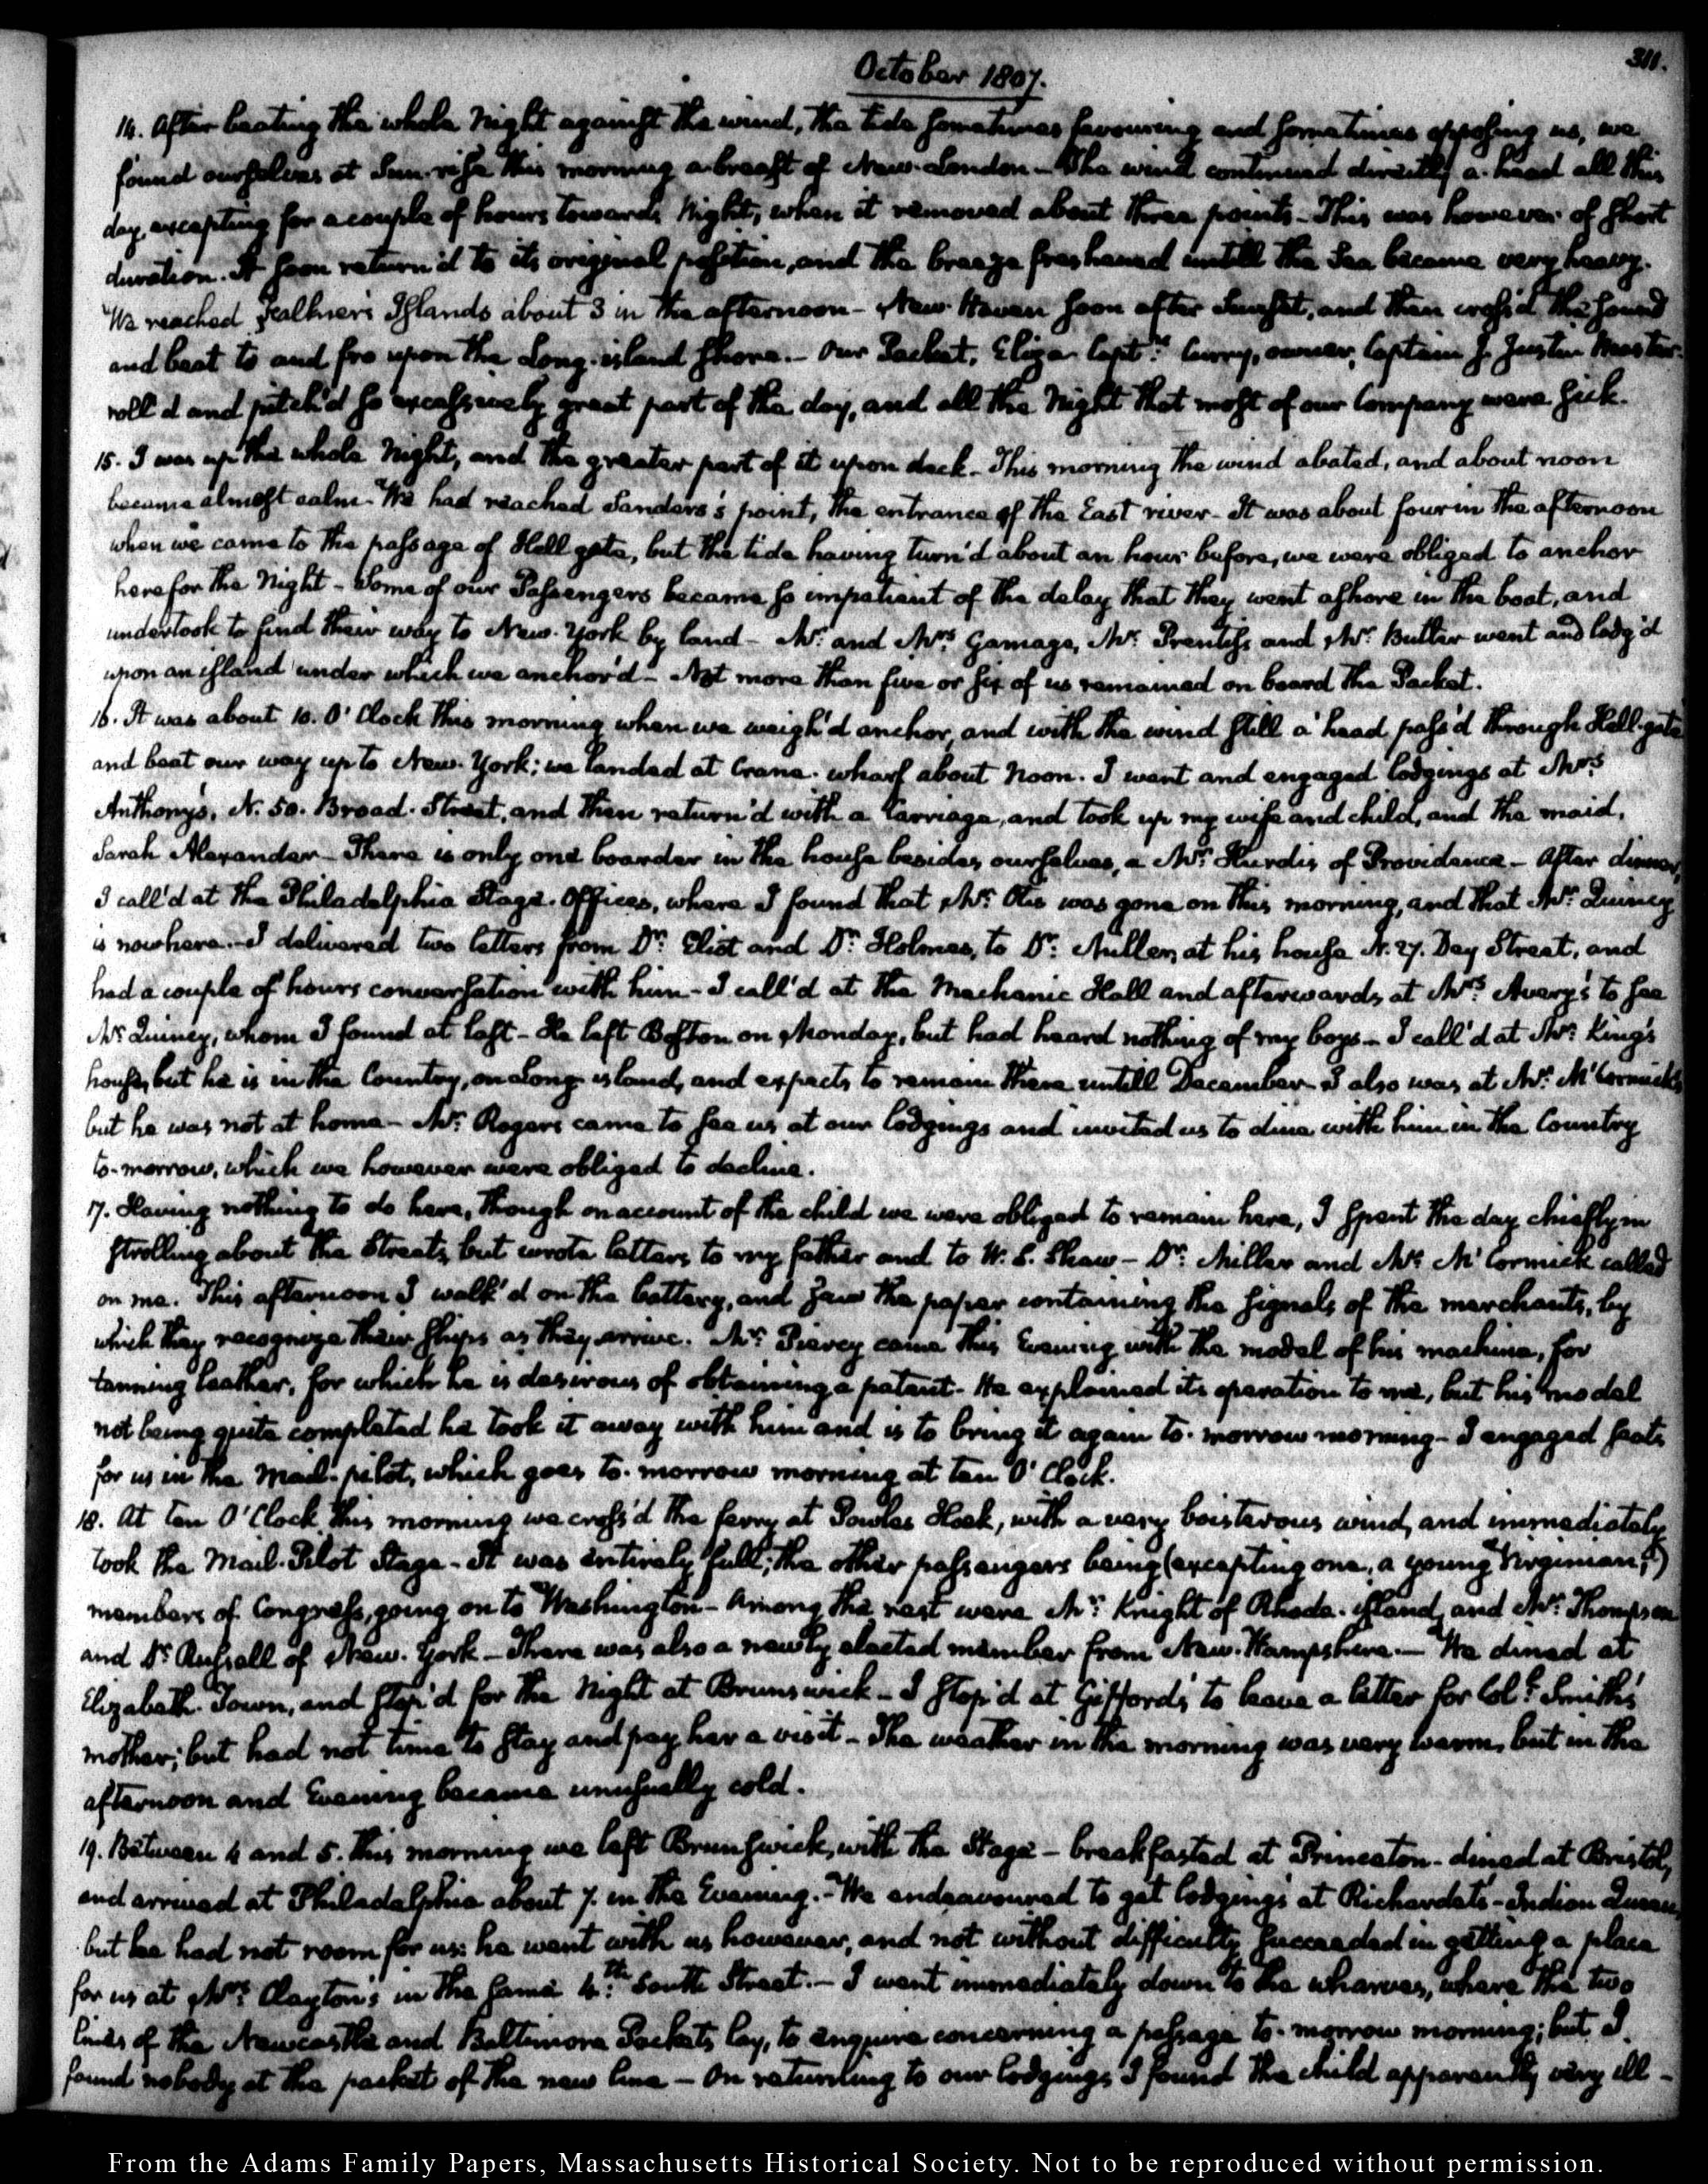 311.
October 1807.
14. After beating the whole Night against the wind, the tide sometimes favouring and sometimes opposing us, we
found ourselves at Sun-rise this morning a-breast of New-London — The wind continued directly a-head all this
day, excepting for a couple of hours towards Night, when it removed about three points — This was however of short
duration. It soon return'd to its original position, and the breeze freshened untill the Sea became very heavy.
We reached Falkner's Islands about 3 in the afternoon — New Haven soon after Sunset, and then cross'd the Sound
and beat to and fro upon the Long-island shore. — Our Packet, Eliza Captn. Curry, owner, Captain J. Justin Master
roll'd and pitch'd so excessively great part of the day, and all the Night that most of our Company were sick.
15. I was up the whole Night, and the greater part of it upon deck — This morning the wind abated, and about noon
became almost calm — We had reached Sanders's point, the entrance of the East river — It was about four in the afternoon
when we came to the passage of Hell gate, but the tide having turn'd about an hour before, we were obliged to anchor
here for the Night — Some of our Passengers became so impatient of the delay that they went ashore in the boat, and
undertook to find their way to New-York by land — Mr. and Mrs. Gamage, Mr. Prentiss and Mr. Butler went and lodg'd
upon an island under which we anchor'd — Not more than five or six of us remained on board the Packet.
16. It was about 10. O'Clock this morning when we weigh'd anchor, and with the wind still a'head pass'd through Hell-gate
and beat our way up to New-York; we landed at Crane-wharf about Noon. I went and engaged lodgings at Mrs.
Anthony's, N. 50. Broad-Street, and then return'd with a Carriage, and took up my wife and child, and the maid,
Sarah Alexander — There is only one boarder in the house besides ourselves, a Mr. Hurdis of Providence — After dinner,
I call'd at the Philadelphia Stage-Offices, where I found that Mr. Otis was gone on this morning, and that Mr. Quincy
is now here. — I delivered two letters from Dr. Eliot and Dr. Holmes, to Dr. Miller, at his house N. 27. Dey Street, and
had a couple of hours conversation with him — I call'd at the Mechanic Hall and afterwards, at Mrs. Avery's to see
Mr. Quincy, whom I found at last — He left Boston on Monday, but had heard nothing of my boys — I call'd at Mr. King's
house, but he is in the Country, on Long-island, and expects to remain there untill December — I also was at Mr. McCormick's
but he was not at home — Mr. Rogers came to see us at our lodgings and invited us to dine with him in the Country
to-morrow, which we however were obliged to decline.
17. Having nothing to do here, though on account of the child we were obliged to remain here, I spent the day chiefly in
strolling about the Streets, but wrote letters to my father and to W. S. Shaw — Dr. Miller and Mr. McCormick called
on me. This afternoon I walk'd on the battery, and saw the paper containing the signals of the merchants, by
which they recognize their ships as they arrive. Mr. Piercy came this Evening with the model of his machine, for
tanning leather, for which he is desirous of obtaining a patent — He explained its operation to me, but his model
not being quite completed he took it away with him and is to bring it again to-morrow morning — I engaged seats
for us in the Mail-pilot, which goes to-morrow morning at ten O'Clock.
18. At ten O'Clock this morning we cross'd the ferry at Powles Hook, with a very boisterous wind, and immediately
took the Mail-Pilot Stage — It was entirely full; the other passengers being (excepting one, a young Virginian,)
members of Congress, going on to Washington — Among the rest were Mr. Knight of Rhode-island, and Mr. Thompson
and Dr. Russell of New-York — There was also a newly elected member from New-Hampshire. — We dined at
Elizabeth-Town, and stop'd for the Night at Brunswick — I stop'd at Giffords' to leave a letter for Coll. Smith's
mother; but had not time to stay and pay her a visit — The weather in the morning was very warm, but in the
afternoon and Evening became unusually cold.
19. Between 4 and 5. this morning we left Brunswick, with the Stage — breakfasted at Princeton — dined at Bristol,
and arrived at Philadelphia about 7. in the Evening. — We endeavoured to get lodgings at Richardet's — Indian Queen,
but he had not room for us: he went with us however, and not without difficulty succeeded in getting a place
for us at Mrs. Clayton's in the same 4th. South Street. — I went immediately down to the wharves, where the two
lines of the Newcastle and Baltimore Packets lay, to enquire concerning a passage to-morrow morning; but I
found nobody at the packet of the new line — On returning to our lodgings I found the child apparently very ill —
From the Adams Family Papers, Massachusetts Historical Society. Not to be reproduced without permission.